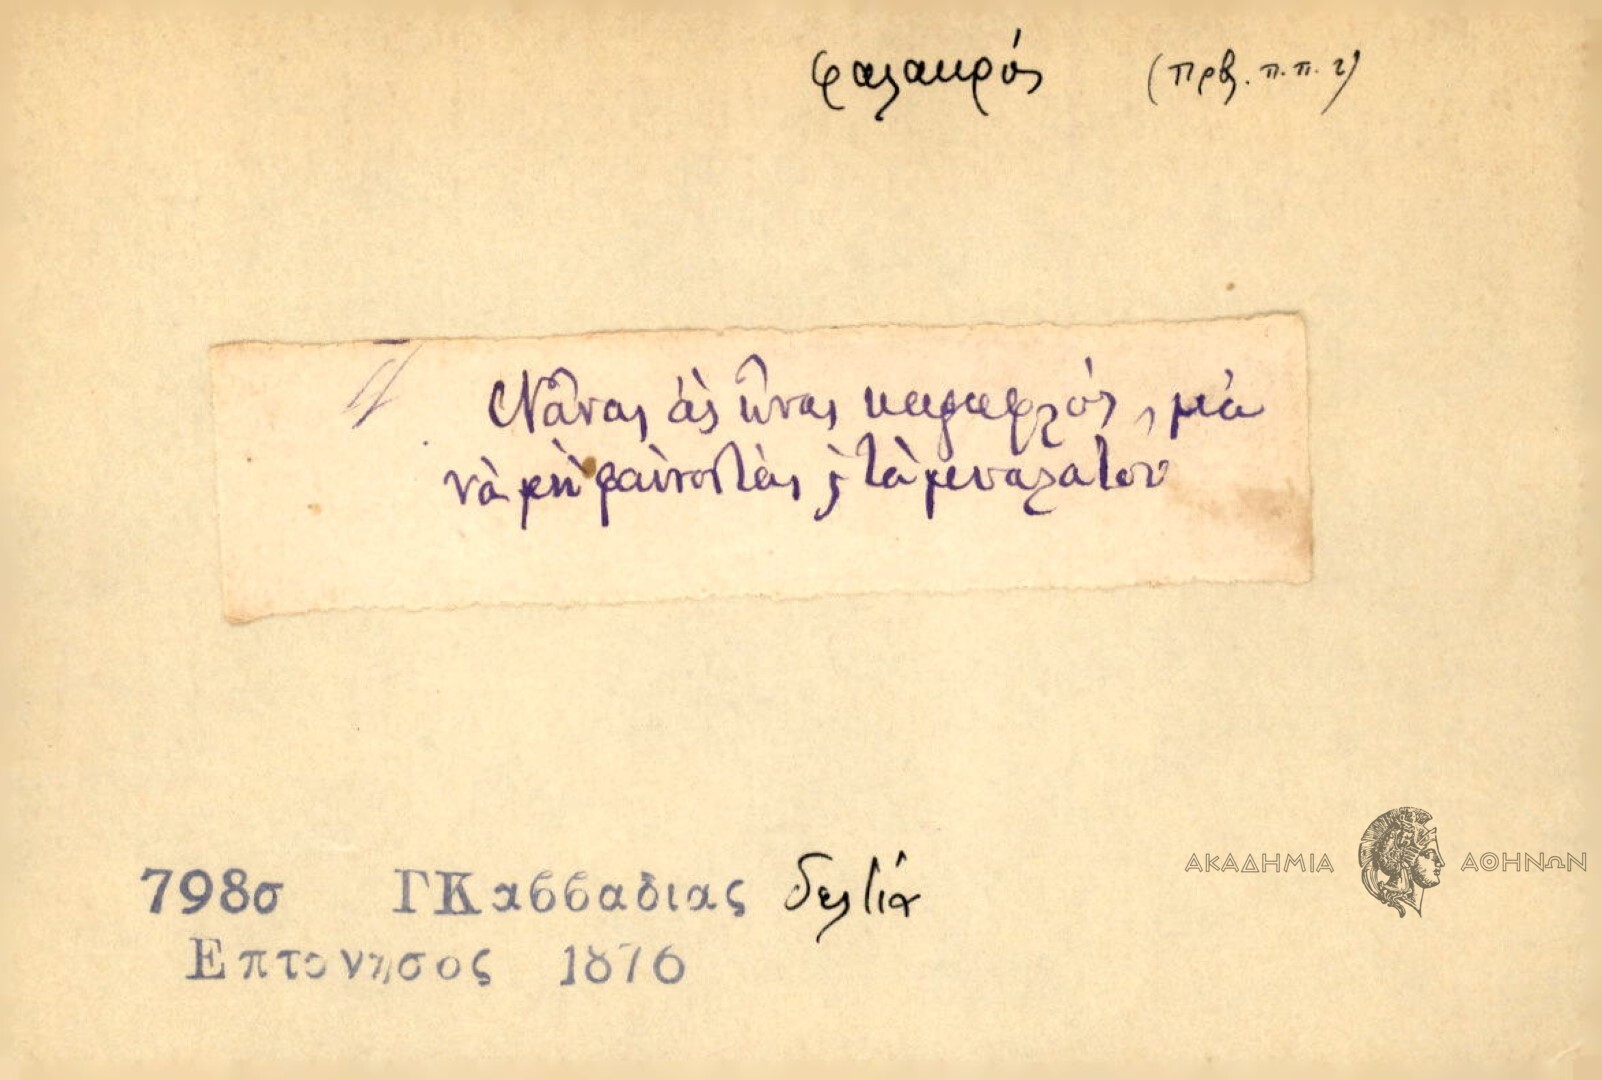 φαλακρός (Πρβ. π.π. 2)
Νᾶναι ἂς ἦναι καραφλός, μὰ
νὰ μὴ φαίνεται ς τὰ μυαλὰ του
798σ ΓΚαββαδιας δελτία
Επτανησος 1876
ΑΚΑΔΗΜΙΑ ΑΘΗΝΩΝ